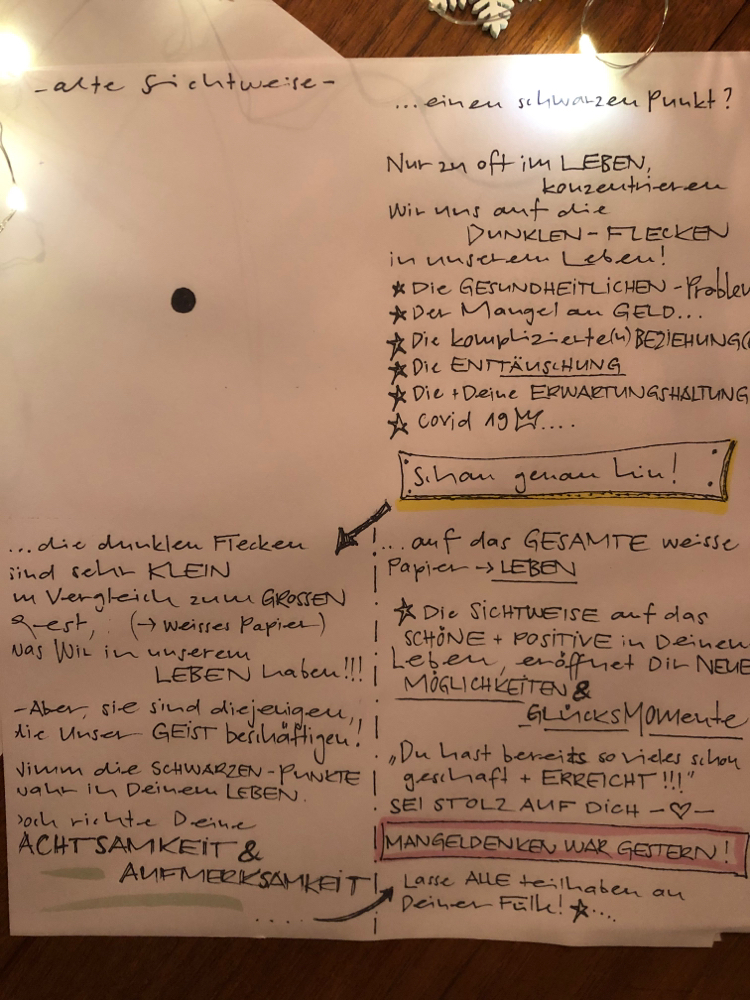 - alte Sichtweise -
...einen schwarzen Punkt?
Nur zu oft im LEBEN,
konzentrieren
Wir uns auf die
DUNKLEN - FLECKEN
in unserem Leben!
☆ Die GESUNDHEITLICHEN - Problem
☆ Der Mangel an GELD...
☆ Die komplizierte(n) BEZIEHUNG(
☆ Die ENTTÄUSCHUNG
☆ Die + Deine ERWARTUNGSHALTUNG
☆ Covid 19 ....
Schau genau hin!
...die dunklen Flecken
sind sehr KLEIN
im Vergleich zum GROSSEN
Rest, (→ weisses Papier)
was Wir in unserem
LEBEN haben!!!
- Aber, sie sind diejenigen,
die Unser GEIST beschäftigen!
Nimm die SCHWARZEN - PUNKTE
wahr in Deinem LEBEN.
Doch richte Deine
ACHTSAMKEIT &
AUFMERKSAMKEIT
.....
...auf das GESAMTE weisse
Papier → LEBEN
☆ Die SICHTWEISE auf das
SCHÖNE + POSITIVE in Deinem
Leben, eröffnet Dir NEUE
MÖGLICHKEITEN &
GLÜCKSMOMENTE
„Du hast bereits so vieles schon
geschaft + ERREICHT!!!"
SEI STOLZ AUF DICH -♡-
MANGELDENKEN WAR GESTERN!
Lasse ALLE teilhaben an
Deiner Fülle! ☆...